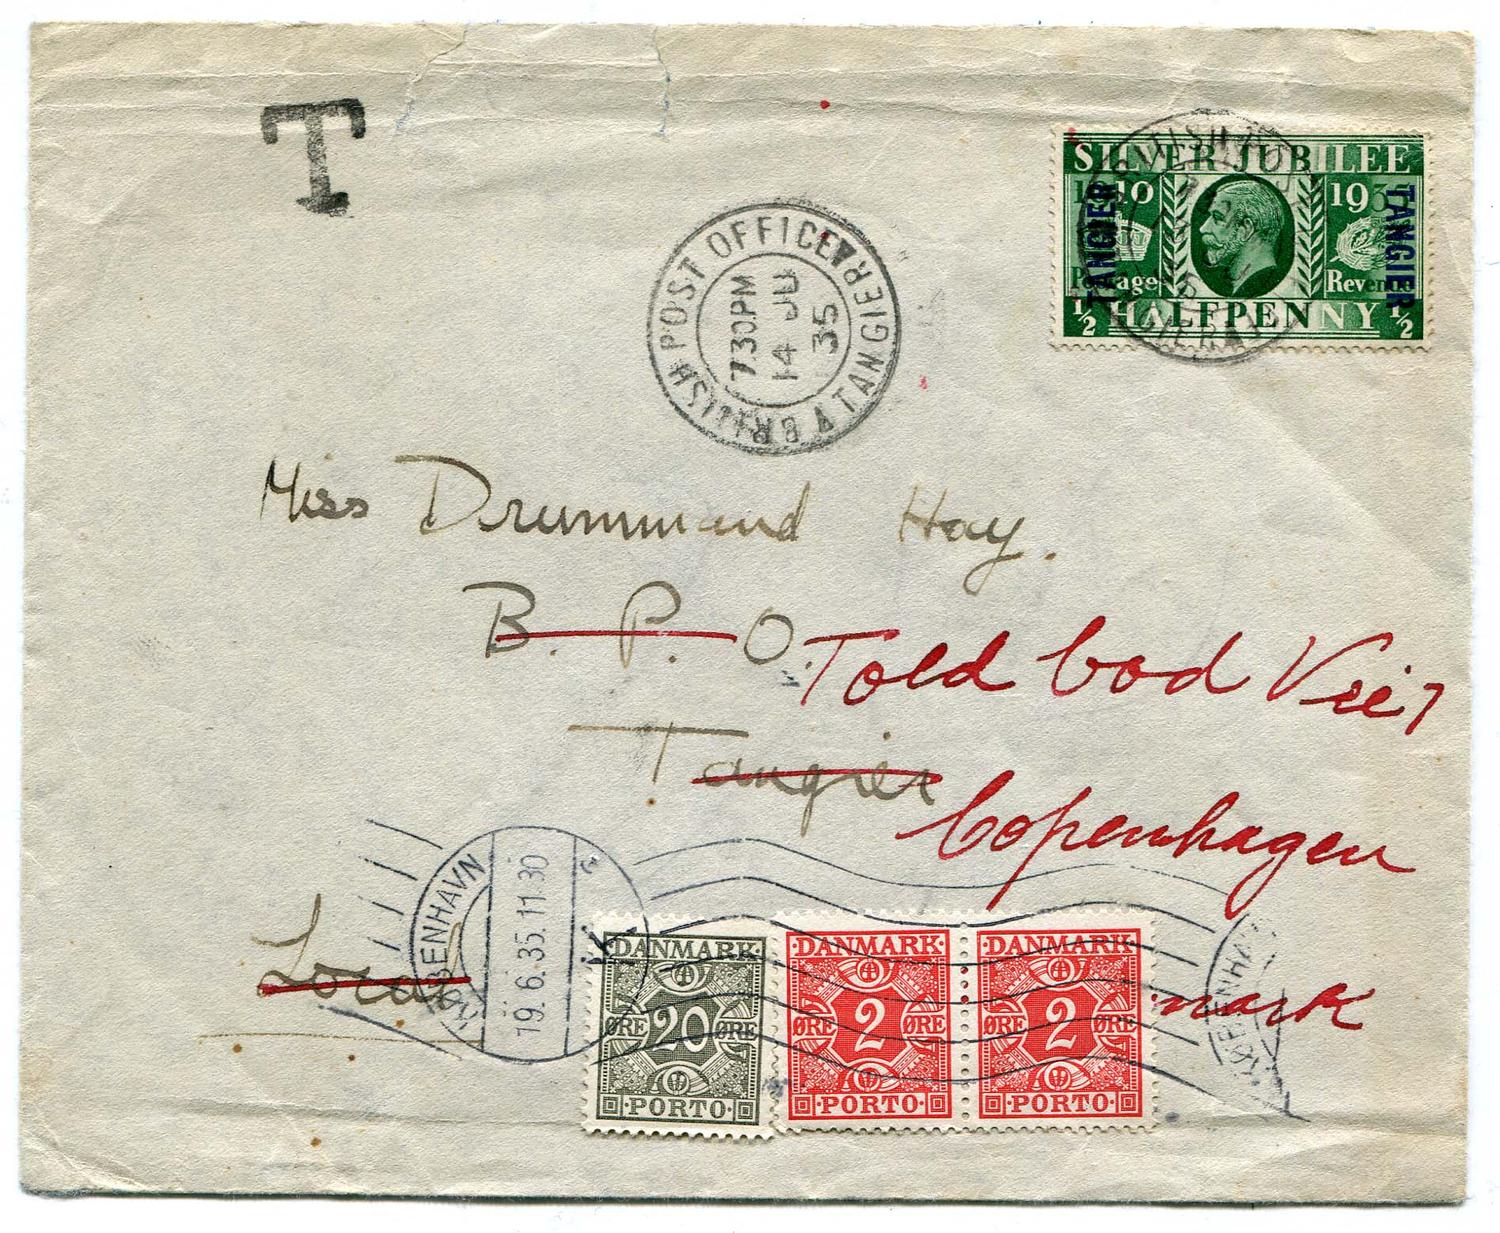 T
SILVER JUBILEE
1910 193
TANGIER TANGIER
Postage Revenue
½ HALFPENNY ½
BRITISH POST OFFICE TANGIER
7.30 PM
14 JU
35
Miss Drummand Hay.
B. P. O.
Told bod Vei 7
Tangier
Copenhagen
Local
mark
KØBENHAVN
19.6.35.11.30
K
KØBENHAVN
DANMARK DANMARK DANMARK
ØRE 20 ØRE ØRE 2 ØRE ØRE 2 ØRE
PORTO PORTO PORTO